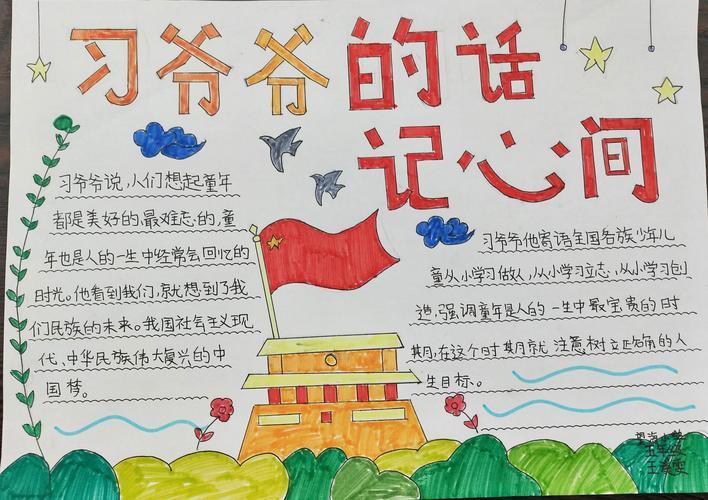 习爷爷的话
记心间
习爷爷说,人们想起童年
都是美好的、最难忘的,童
年也是人的一生中经常会回忆的
时光。他看到我们,就想到了我
们民族的未来。我国社会主义现
代、中华民族伟大复兴的中
国梦。
习爷爷他寄语全国各族少年儿
童从小学习做人,从小学习立志,从小学习创
造,强调童年是人的一生中最宝贵的时
期,在这个时期就注意树立正确的人
生目标。
五年级